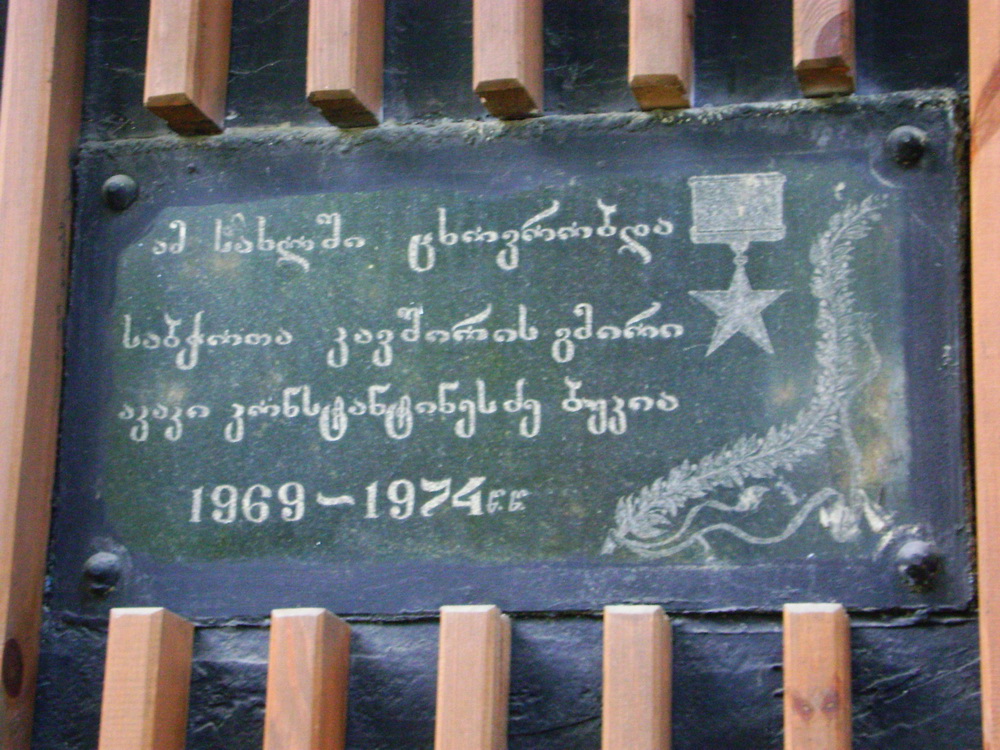 ამ სახლში ცხოვრობდა
საბჭოთა კავშირის გმირი
აკაკი კონსტანტინეს ძე ბუკია
1969–1974 წ.წ.